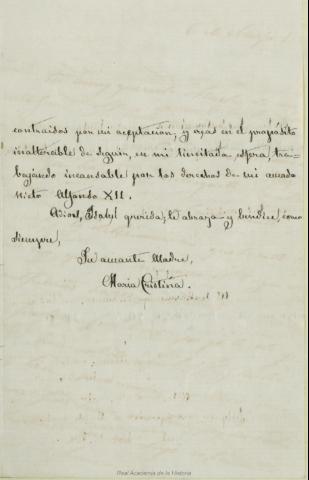 contraidos por mi aceptación, y más en el propósito
inalterable de seguir, en mi limitada esfera, tra-
bajando incansable por los derechos de mi amado
nieto Alfonso XII.
Adios, Isabel querida; te abraza y bendice, como
siempre,
Tu amante Madre,
Maria Cristina.
Real Academia de la Historia